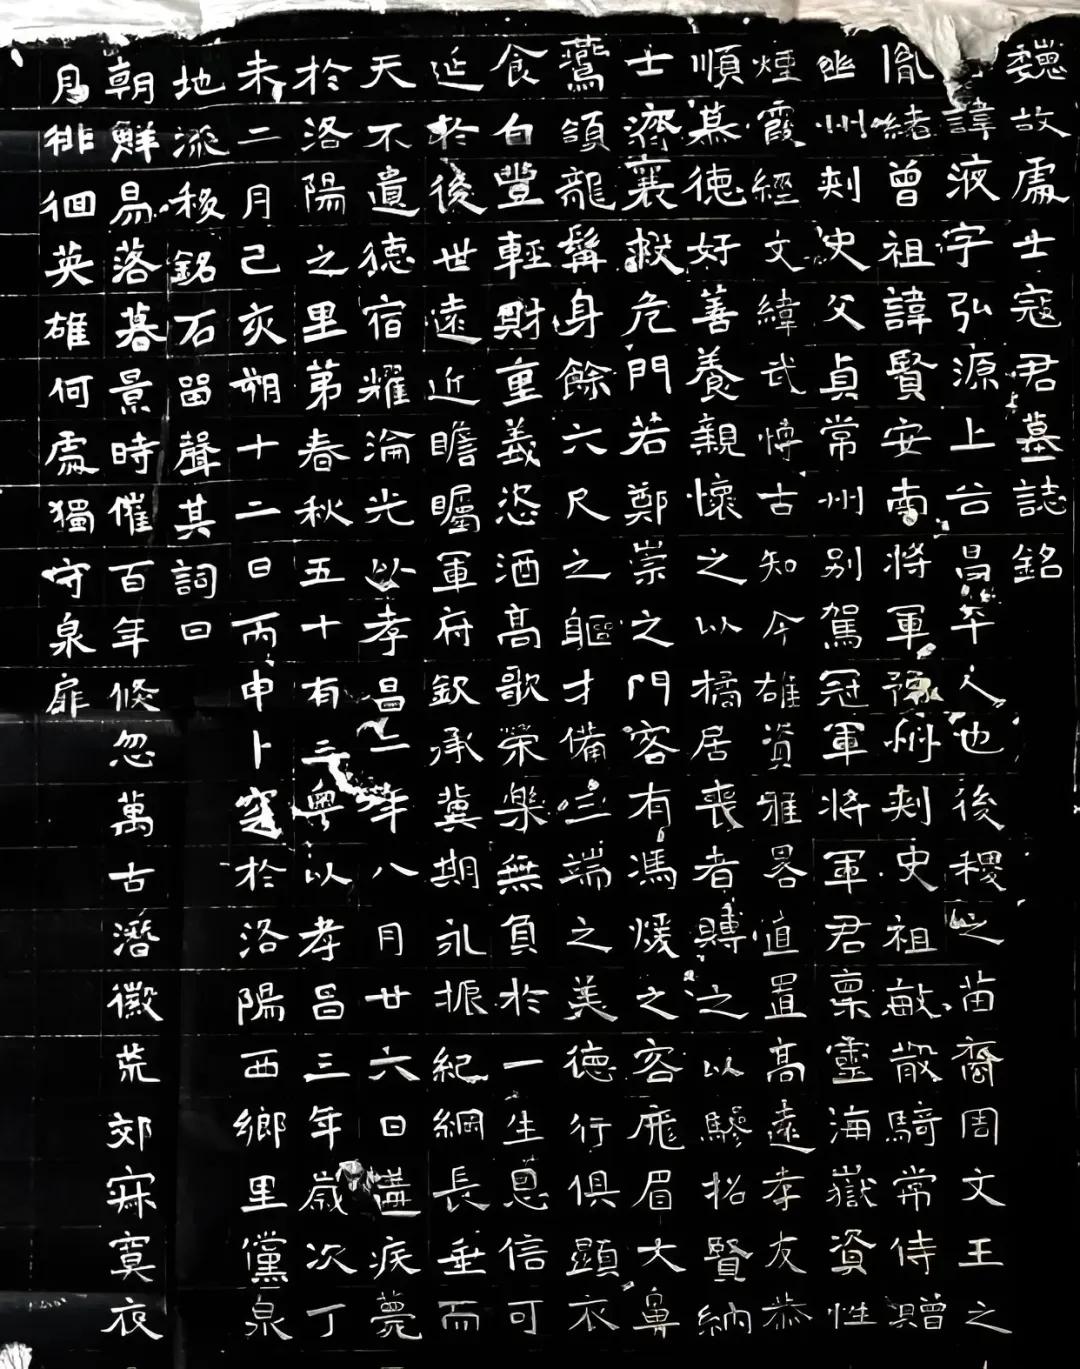 魏故處士寇君墓誌銘
諱液字弘源上谷昌平人也後稷之苗裔周文王之
胤緒曾祖諱賢安南將軍豫州刾史祖敏散騎常侍贈
幽州刾史父貞常州別駕冠軍將軍君稟靈海嶽資性
煙霞經文緯武博古知今雄資雅畧值置高遠孝友恭
順慕德好善養親懷之以橘居喪者賻之以驂招賢納
士濟襄救危門若鄭崇之門客有馮煖之容厖眉大鼻
鷰頷龍髯身餘六尺之軀才備三端之美德行俱顯衣
食自豐輕財重義恣酒高歌榮樂無負於一生恩信可
延於後世遠近瞻矚軍府欽承冀期永振紀綱長垂而
天不遺德宿耀淪光以孝昌二年八月廿六日遘疾薨
於洛陽之里第春秋五十有三粵以孝昌三年歲次丁
未二月己亥朔十二日丙申卜窆於洛陽西鄉里黨泉
地流移銘石留聲其詞曰
朝鮮易落暮景時催百年倏忽萬古潛徽荒郊寂寞衣
月徘徊英雄何處獨守泉扉